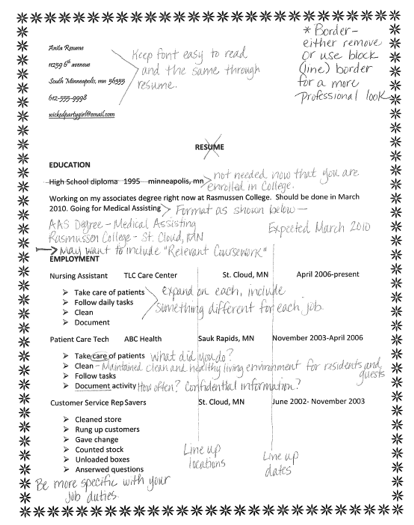 Anita Resume
n1259 6th avenue
South Minneapolis, mn 56555
612-555-9998
wickedpartygirl@email.com
Keep font easy to read
and the same through
resume.
* Border-
either remove
or use block
(line) border
for a more
professional look
RESUME
EDUCATION
High School diploma 1995 minneapolis, mn
not needed now that you are
enrolled in College.
Working on my associates degree right now at Rasmussen College. Should be done in March
2010. Going for Medical Assisting
Format as shown below -
AAS Degree - Medical Assisting
Expected March 2010
Rasmussen College - St. Cloud, MN
May want to include "Relevant Coursework"
EMPLOYMENT
Nursing Assistant TLC Care Center St. Cloud, MN April 2006-present
Take care of patients
Follow daily tasks
Clean
Document
expand on each, include
something different for each job.
Patient Care Tech ABC Health Sauk Rapids, MN November 2003-April 2006
Take care of patients what did you do?
Clean - Maintained clean and healthy living environment for residents and
guests
Follow tasks
Document activity How often? Confidential information?
Customer Service Rep Savers St. Cloud, MN June 2002- November 2003
Cleaned store
Rung up customers
Gave change
Counted stock
Unloaded boxes
Anserwed questions
Line up
locations
Line up
dates
Be more specific with your
job duties.